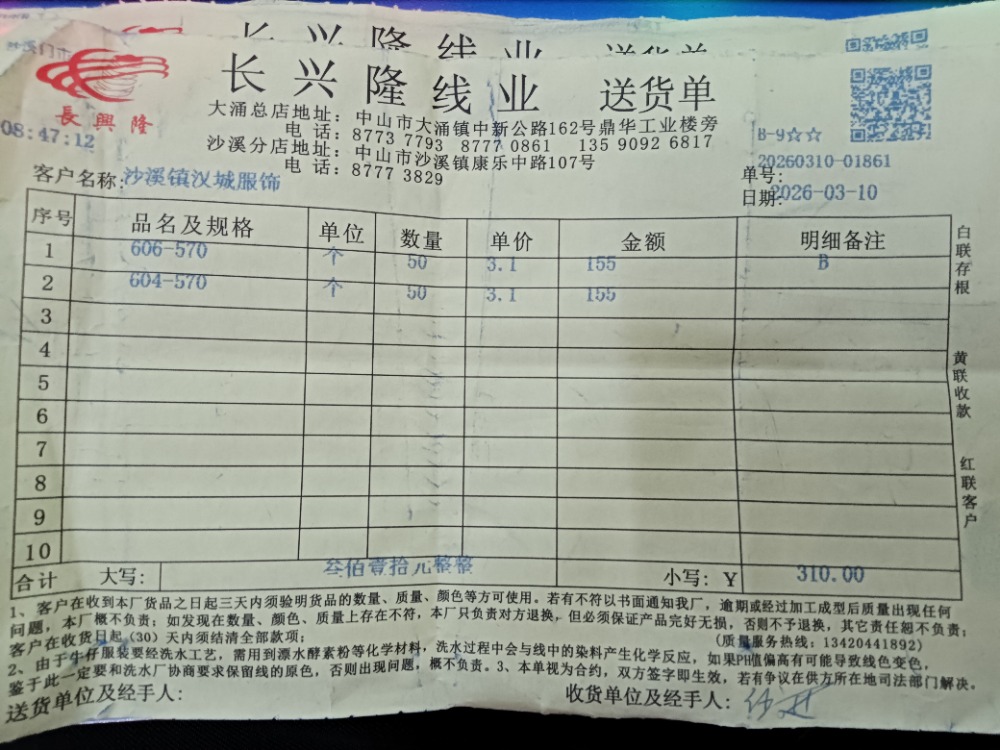 长兴隆线业 送货单
長興隆
08:47:12
大涌总店地址：中山市大涌镇中新公路162号鼎华工业楼旁
电 话：8773 7793 8777 0861 135 9092 6817
沙溪分店地址：中山市沙溪镇康乐中路107号
电 话：8777 3829
B-9☆☆
客户名称：沙溪镇汉城服饰
单号：20260310-01861
日期：2026-03-10
序号 品名及规格 单位 数量 单价 金额 明细备注
1 606-570 个 50 3.1 155 B
2 604-570 个 50 3.1 155
3
4
5
6
7
8
9
10
合计 大写： 叁佰壹拾元整整 小写：Y 310.00
白联存根
黄联收款
红联客户
1、客户在收到本厂货品之日起三天内须验明货品的数量、质量、颜色等方可使用。若有不符以书面通知我厂，逾期或经过加工成型后质量出现任何
问题，本厂概不负责；如发现在数量、颜色、质量上存在不符，本厂只负责对方退换，但必须保证产品完好无损，否则不予退换，其它责任恕不负责；
客户在收货日起（30）天内须结清全部款项； （质量服务热线：13420441892）
2、由于牛仔服装要经洗水工艺，需用到漂水酵素粉等化学材料，洗水过程中会与线中的染料产生化学反应，如果PH值偏高有可能导致线色变色，
鉴于此一定要和洗水厂协商要求保留线的原色，否则出现问题，概不负责。3、本单视为合约，双方签字即生效，若有争议在供方所在地司法部门解决。
送货单位及经手人： 收货单位及经手人：